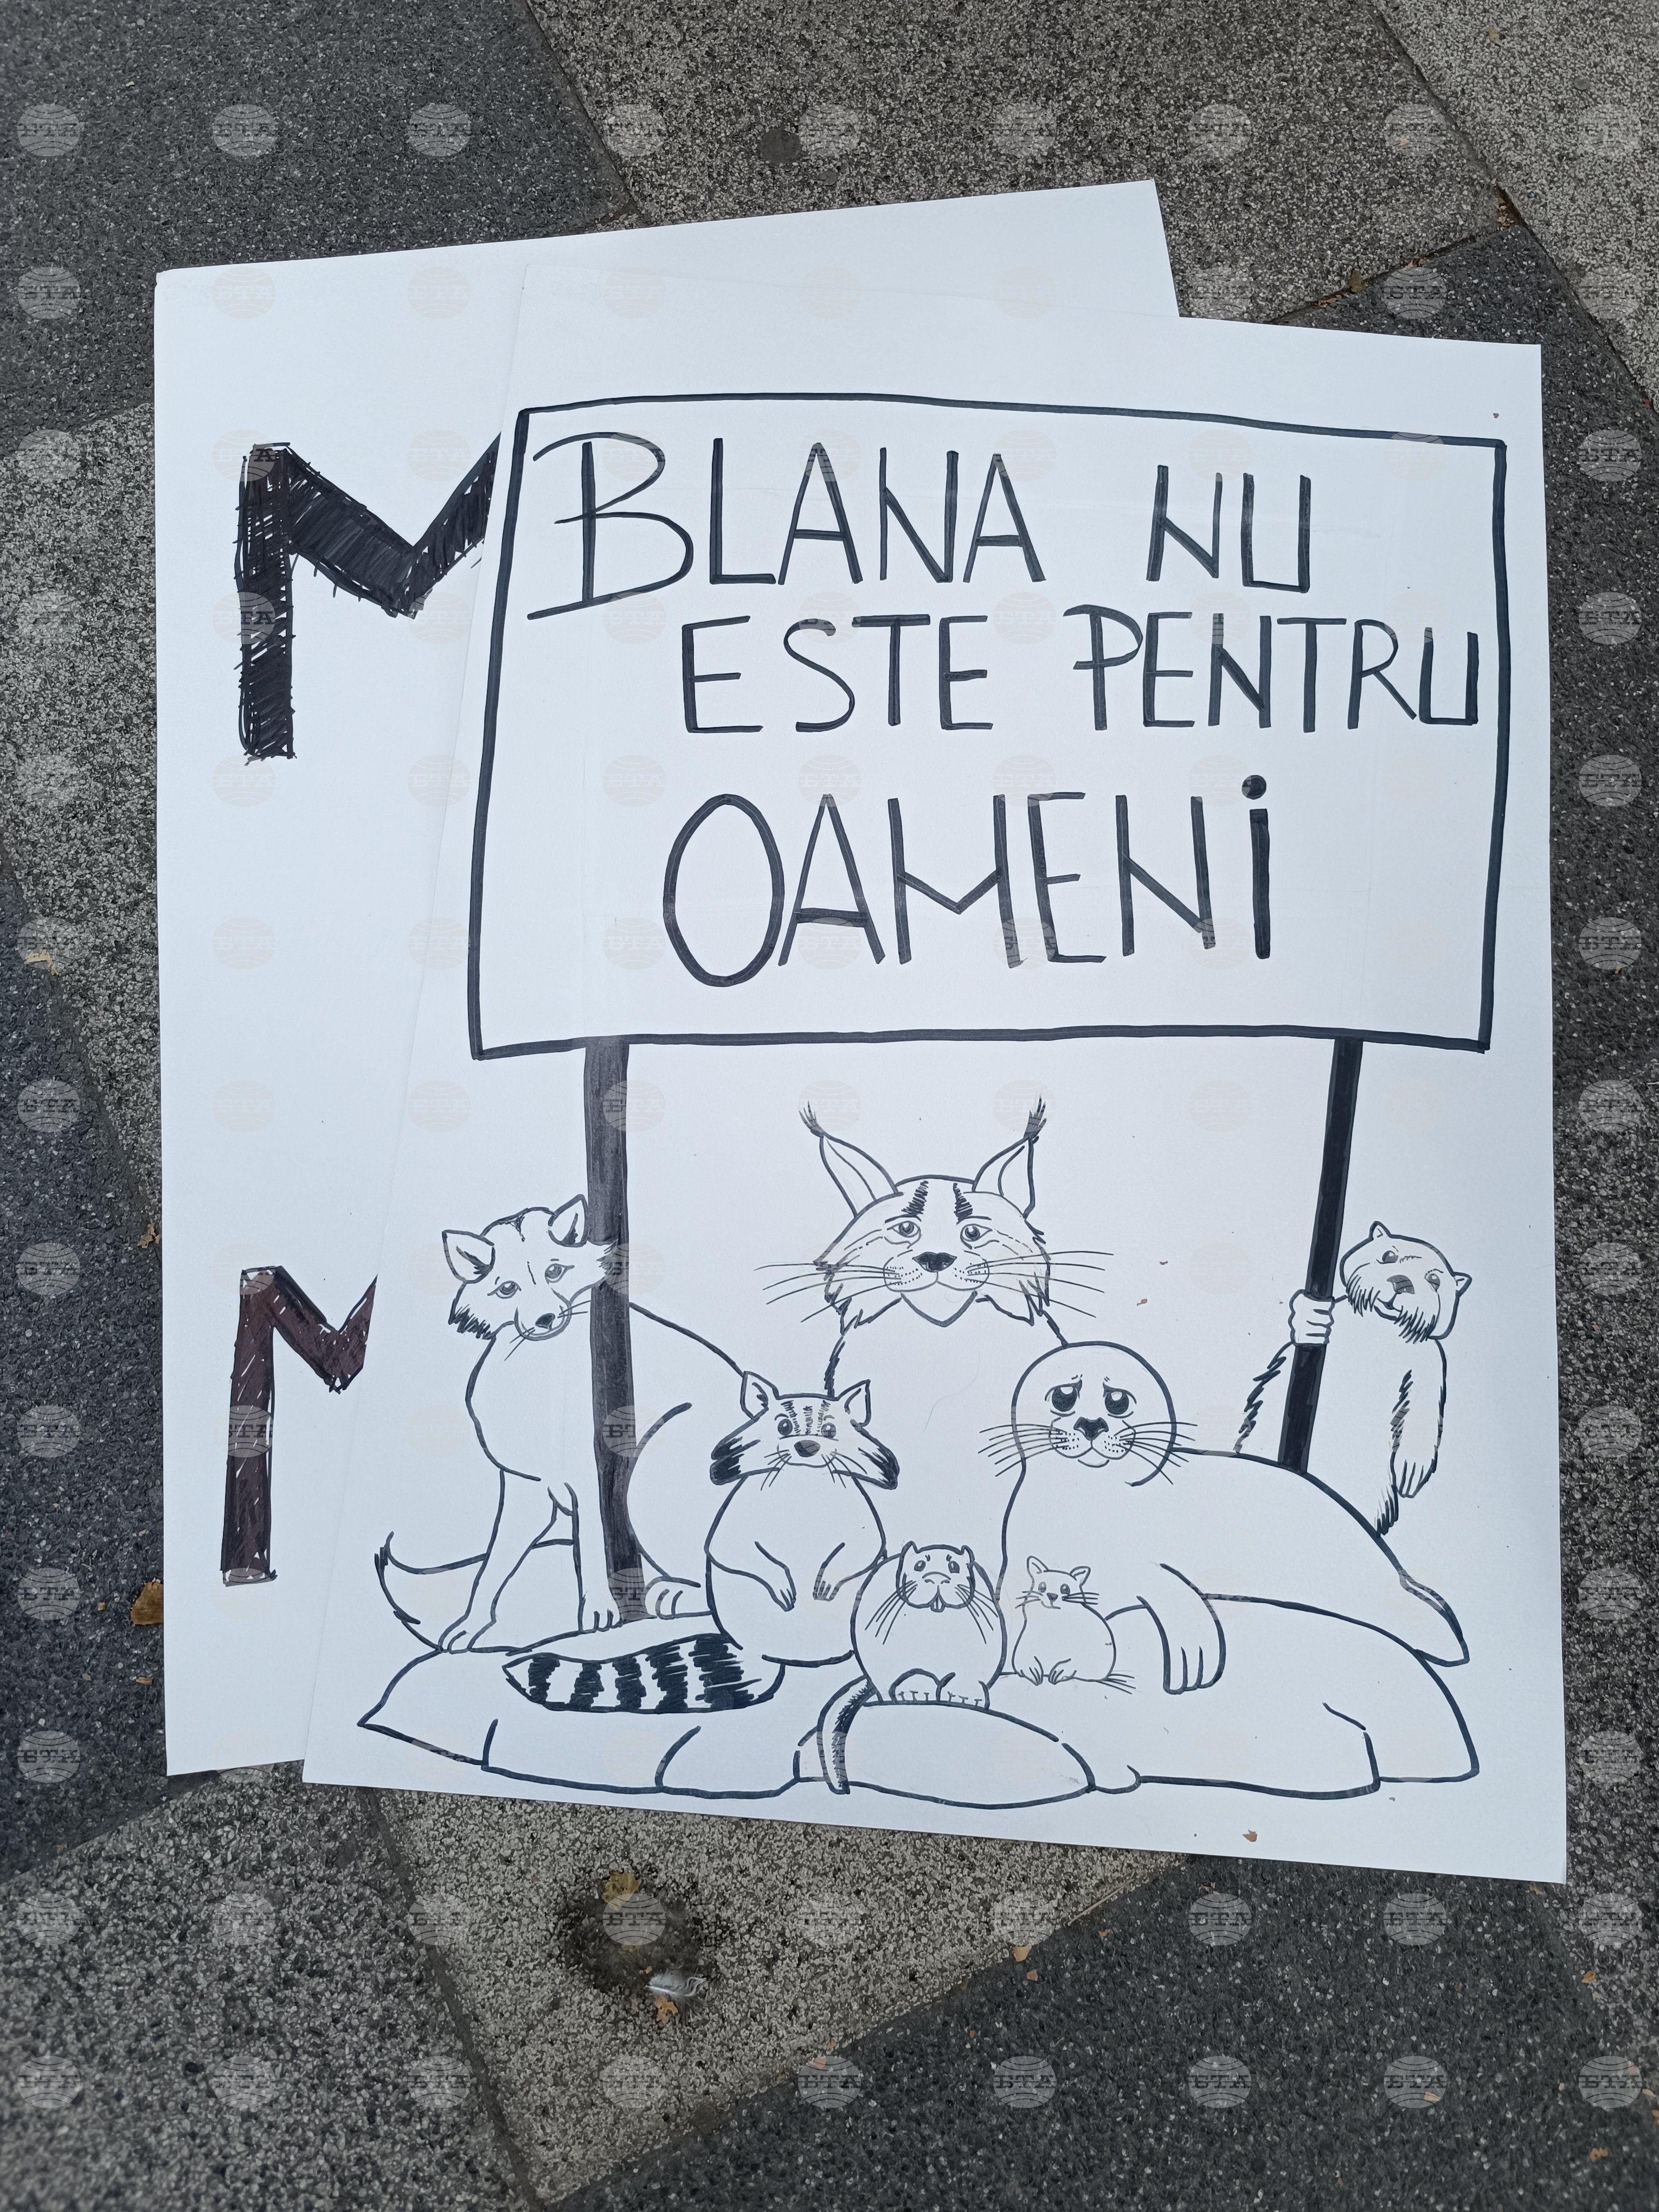 BLANA NU
ESTE PENTRU
OAMENI
M
M
БТА